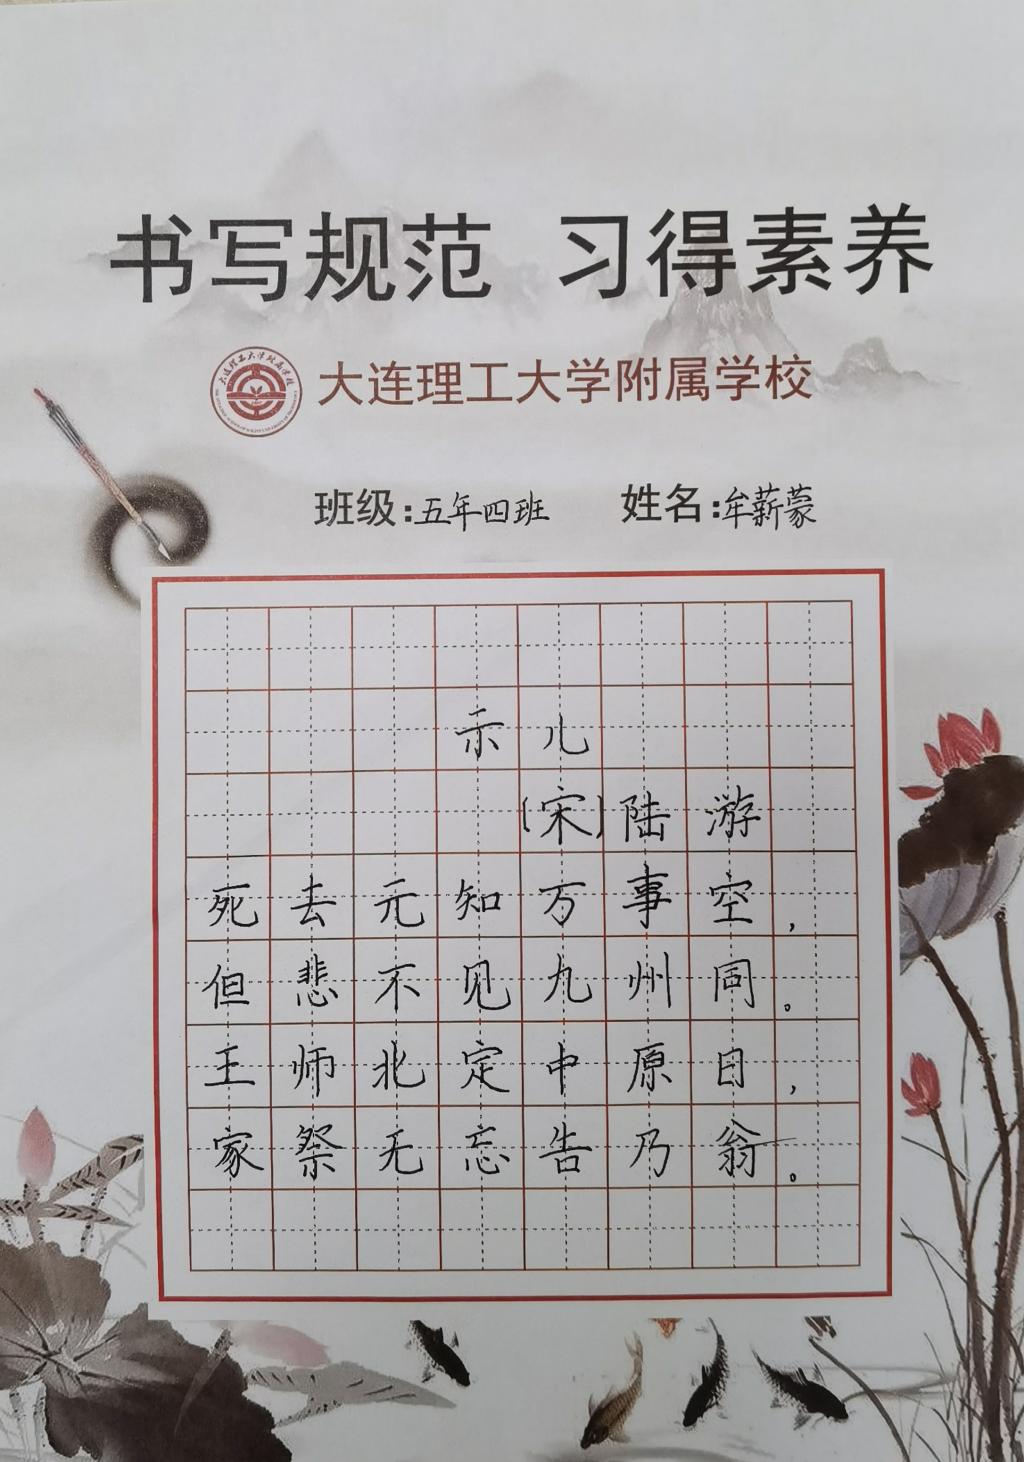 书写规范 习得素养
大连理工大学附属学校
大连理工大学附属学校
班级:五年四班 姓名:牟薪蒙
示儿
(宋)陆游
死去元知万事空,
但悲不见九州同。
王师北定中原日,
家祭无忘告乃翁。